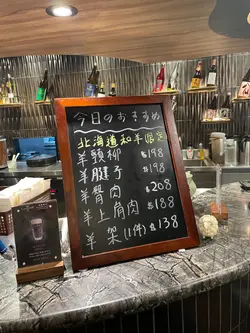 今日のおすすめ
北海道和羊限定
羊頸柳 $198
羊腱子 $198
羊臀肉 $208
羊上肩肉 $188
羊架(1件) $138